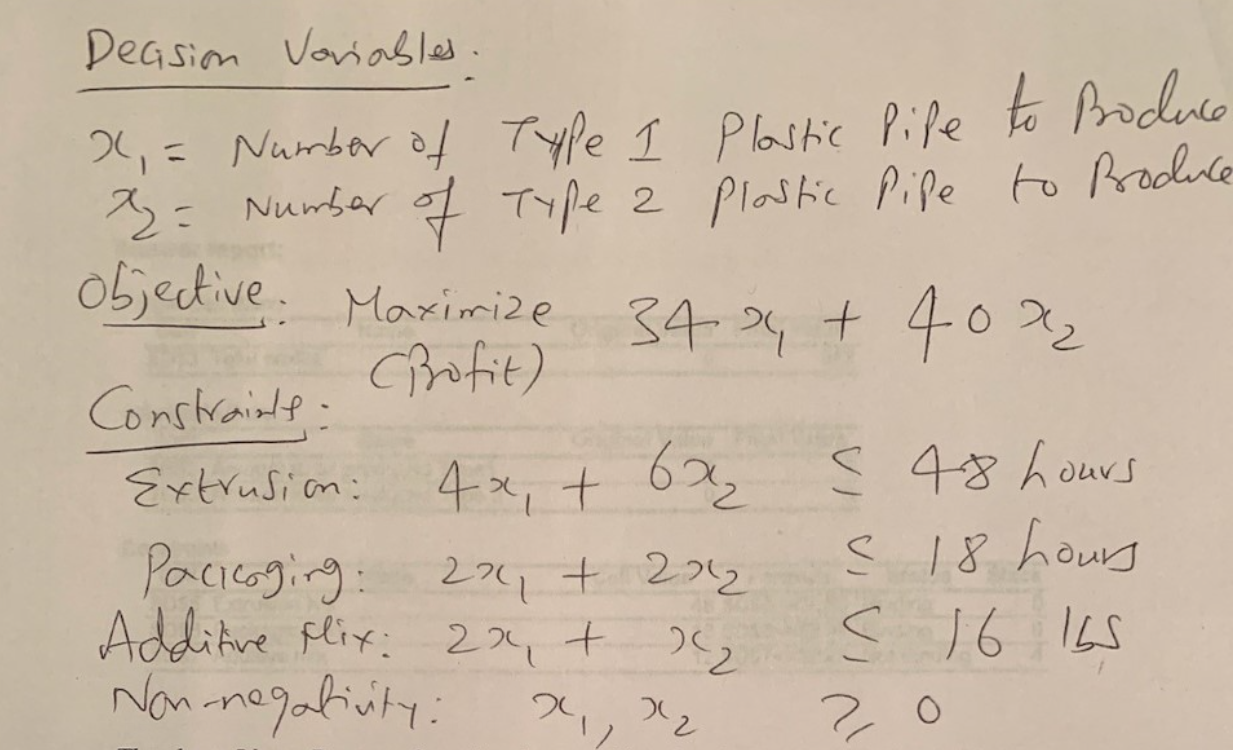 Decision Variables:
x₁ = Number of Type 1 Plastic Pipe to Produce
x₂ = Number of Type 2 Plastic Pipe to Produce
Objective: Maximize 34x₁ + 40x₂
(Profit)
Constraints:
Extrusion: 4x₁ + 6x₂ ≤ 48 hours
Packaging: 2x₁ + 2x₂ ≤ 18 hours
Additive Mix: 2x₁ + x₂ ≤ 16 lbs
Non-negativity: x₁, x₂ ≥ 0